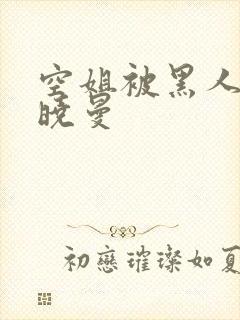 空姐被黑人
晚曼
初戀璀璨如夏